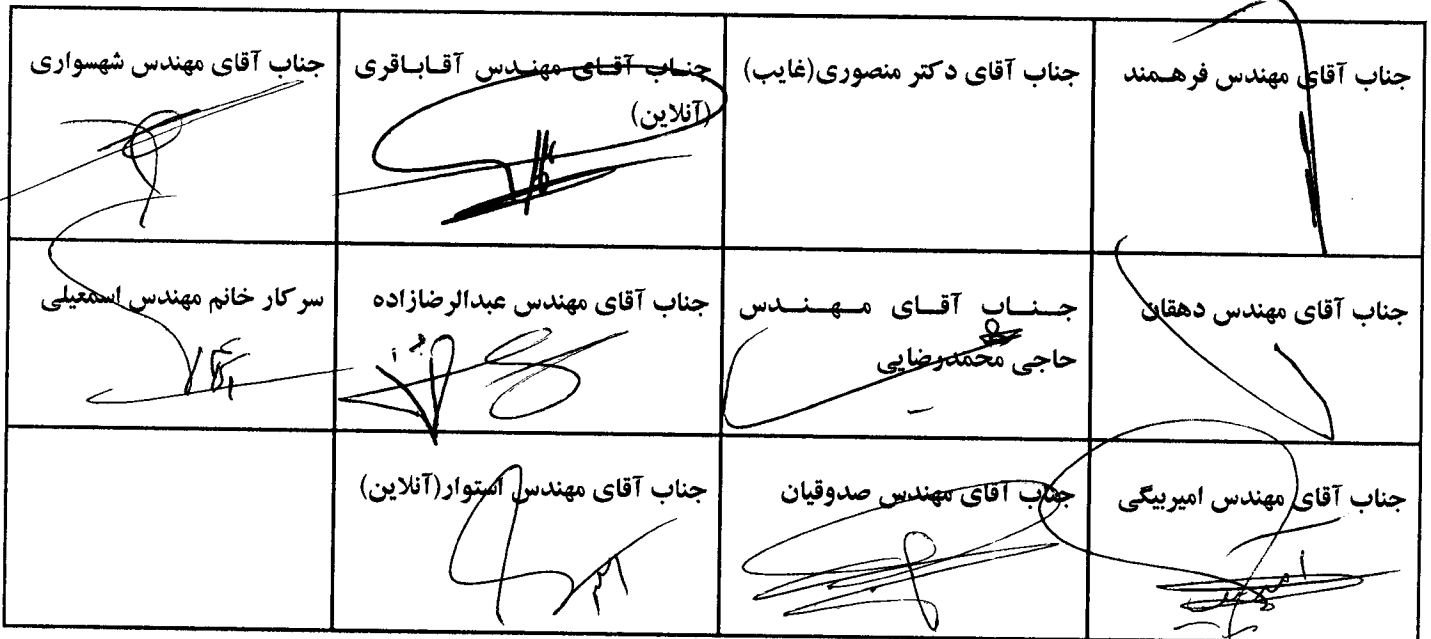 جناب آقای مهندس فرهمند
جناب آقای دکتر منصوری(غایب)
جناب آقای مهندس آقاباقری
(آنلاین)
جناب آقای مهندس شهسواری
جناب آقای مهندس دهقان
جناب آقای مهندس
حاجی محمدرضایی
جناب آقای مهندس عبدالرضازاده
سرکار خانم مهندس اسمعیلی
جناب آقای مهندس امیربیگی
جناب آقای مهندس صدوقیان
جناب آقای مهندس استوار(آنلاین)